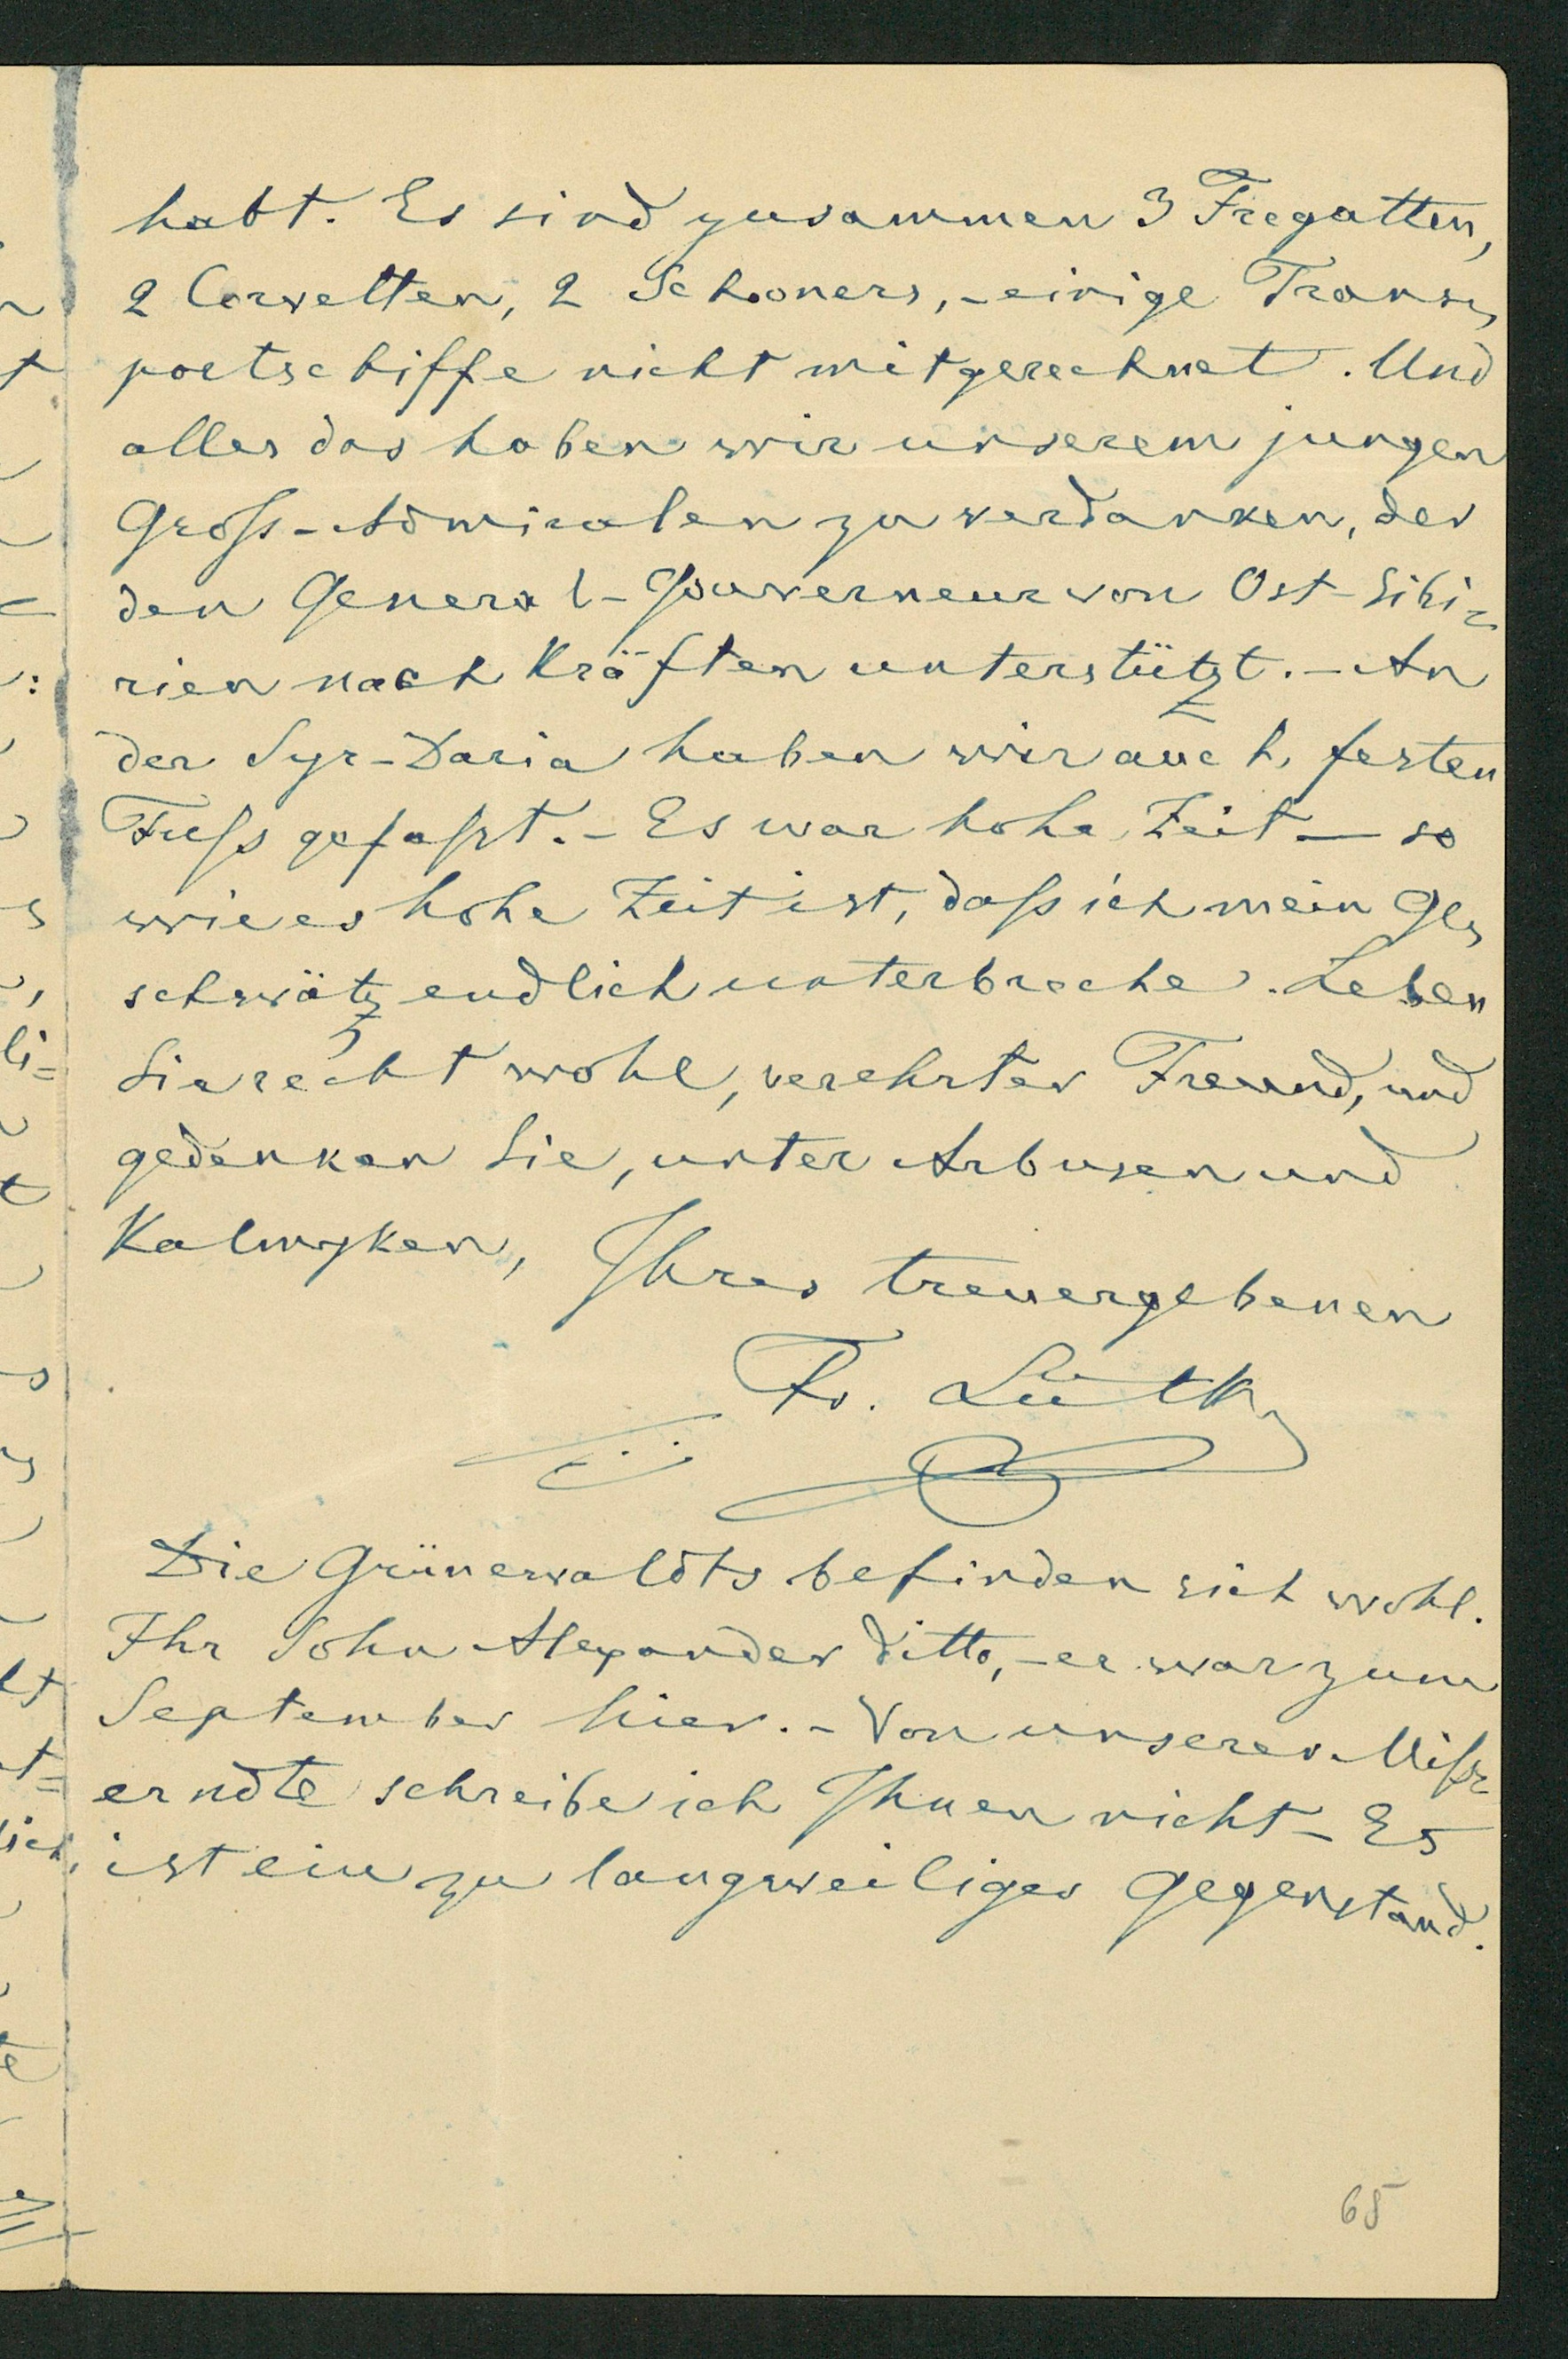 habt. Es sind zusammen 3 Fregatten,
2 Corvetten, 2 Schooners, - einige Trans-
portschiffe nicht mitgerechnet. Und
alles das haben wir unserem jungen
Groß-Admiralen zu verdanken, der
den General-Gouverneur von Ost-Sibi-
rien nach Kräften unterstützt. - An
der Syr-Daria haben wir auch festen
Fuß gefaßt. - Es war hohe Zeit — so
wie es hohe Zeit ist, daß ich mein Ge-
schwätz endlich unterbreche. Leben
Sie recht wohl, verehrter Freund, und
gedenken Sie, unter Arbusen und
Kalmyken, Ihres treuergebenen
Fr. Lütke
Die Grünewaldts befinden sich wohl.
Ihr Sohn Alexander ditto, - er war zum
September hier. - Von unserer Miß-
erndte schreibe ich Ihnen nicht - Es
ist ein zu langweiliger Gegenstand.
65